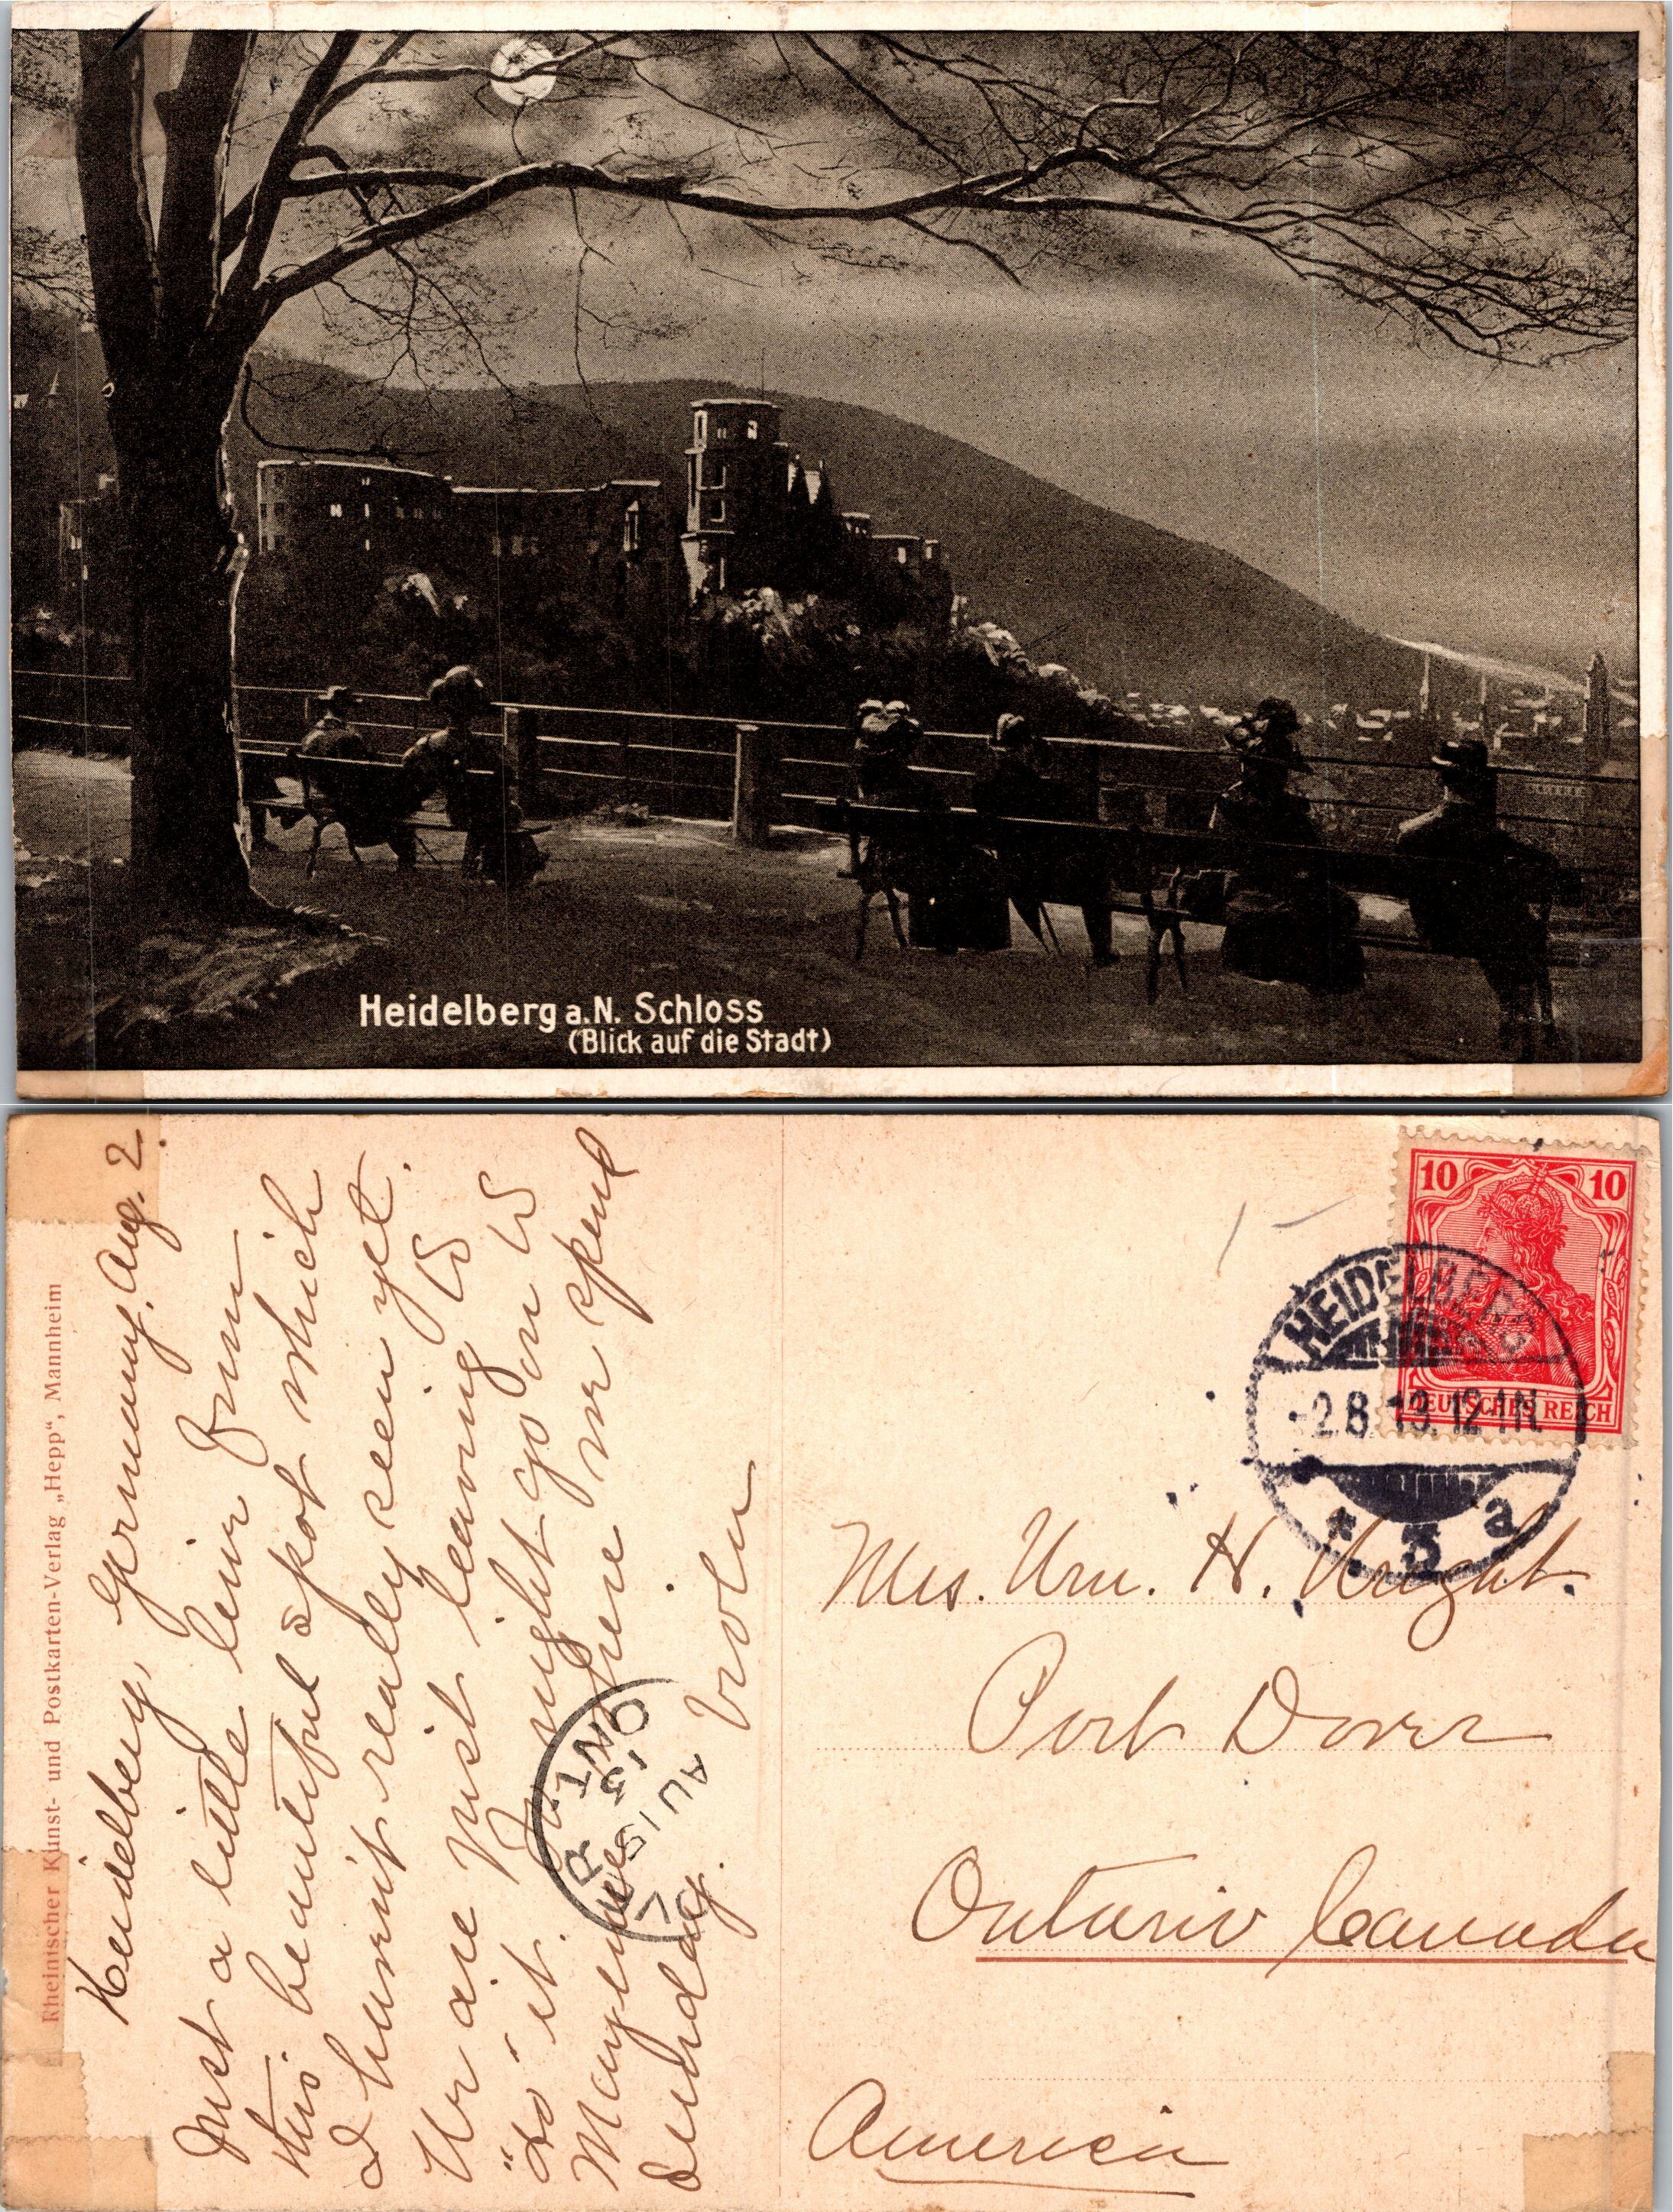 Heidelberg a.N. Schloss
(Blick auf die Stadt)
Rheinischer Kunst- und Postkarten-Verlag „Hepp“, Mannheim
Heidelberg, Germany. Aug. 2.
Just a little line from
this beautiful spot which
I haven't really seen yet.
We are just leaving to
"do" it. To night go on to
Mayence where we spend
Sunday.
Viola
10 10
DEUTSCHES REICH
HEIDELBERG
-2.8.13.12-1N.
* 3 a
Mrs. Wm. H. Wright.
Port Dover
Ontario Canada
America
AU 13
ONT